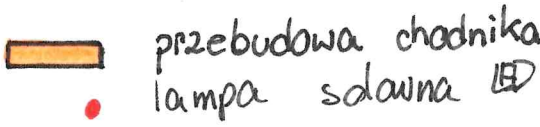 przebudowa chodnika
lampa solarna LED